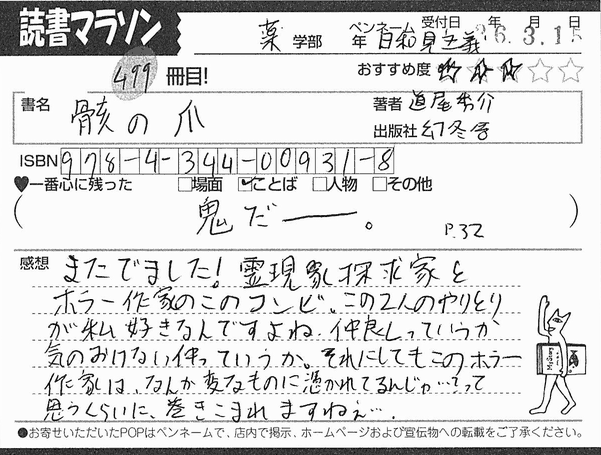 読書マラソン
499冊目!
薬 学部 年
ペンネーム 日和見主義
受付日 年 月 日
26.3.15
おすすめ度 ☆☆☆☆☆
書名 骸の爪
著者 道尾秀介
出版社 幻冬舎
ISBN 978-4-344-00931-8
♥一番心に残った □場面 ☑ことば □人物 □その他
( 鬼だ――。 P.32 )
感想 またでました!霊現象探求家と
ホラー作家のこのコンビ、この2人のやりとり
が私好きなんですよね。仲良しっていうか
気のおけない仲っていうか。それにしてもこのホラー
作家は、なんか変なものに憑かれてるんじゃ…てって
思うくらいに、巻きこまれますねぇ…。
●お寄せいただいたPOPはペンネームで、店内で掲示、ホームページおよび宣伝物への転載をご了承ください。